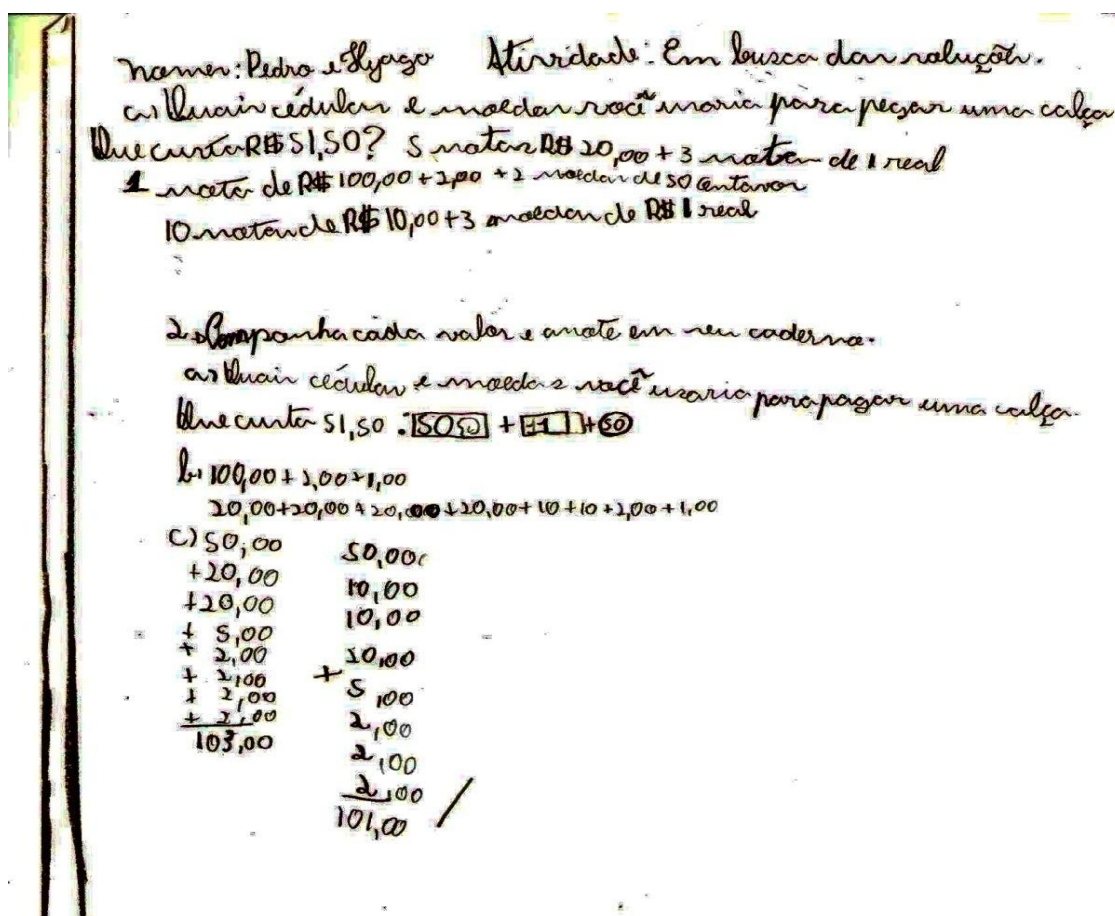 nomes: Pedro e Hyago Atividade: Em busca das soluções.
a) Quais cédulas e moedas você usaria para pegar uma calça
Que custa R$ 51,50? 5 notas R$ 20,00 + 3 notas de 1 real
1 nota de R$ 100,00 + 2,00 + 2 moedas de 50 centavos
10 notas de R$ 10,00 + 3 moedas de R$ 1 real
2) Componha cada valor e anote em seu caderno.
a) Quais cédulas e moedas você usaria para pagar uma calça.
Que custa 51,50. 50 + 1 + 50
b) 100,00 + 2,00 + 1,00
20,00 + 20,00 + 20,00 + 20,00 + 10 + 10 + 2,00 + 1,00
C) 50,00
+20,00
+20,00
+ 5,00
+ 2,00
+ 2,00
+ 2,00
+ 2,00
103,00
50,00
10,00
10,00
20,00
+ 5,00
2,00
2,00
2,00
101,00